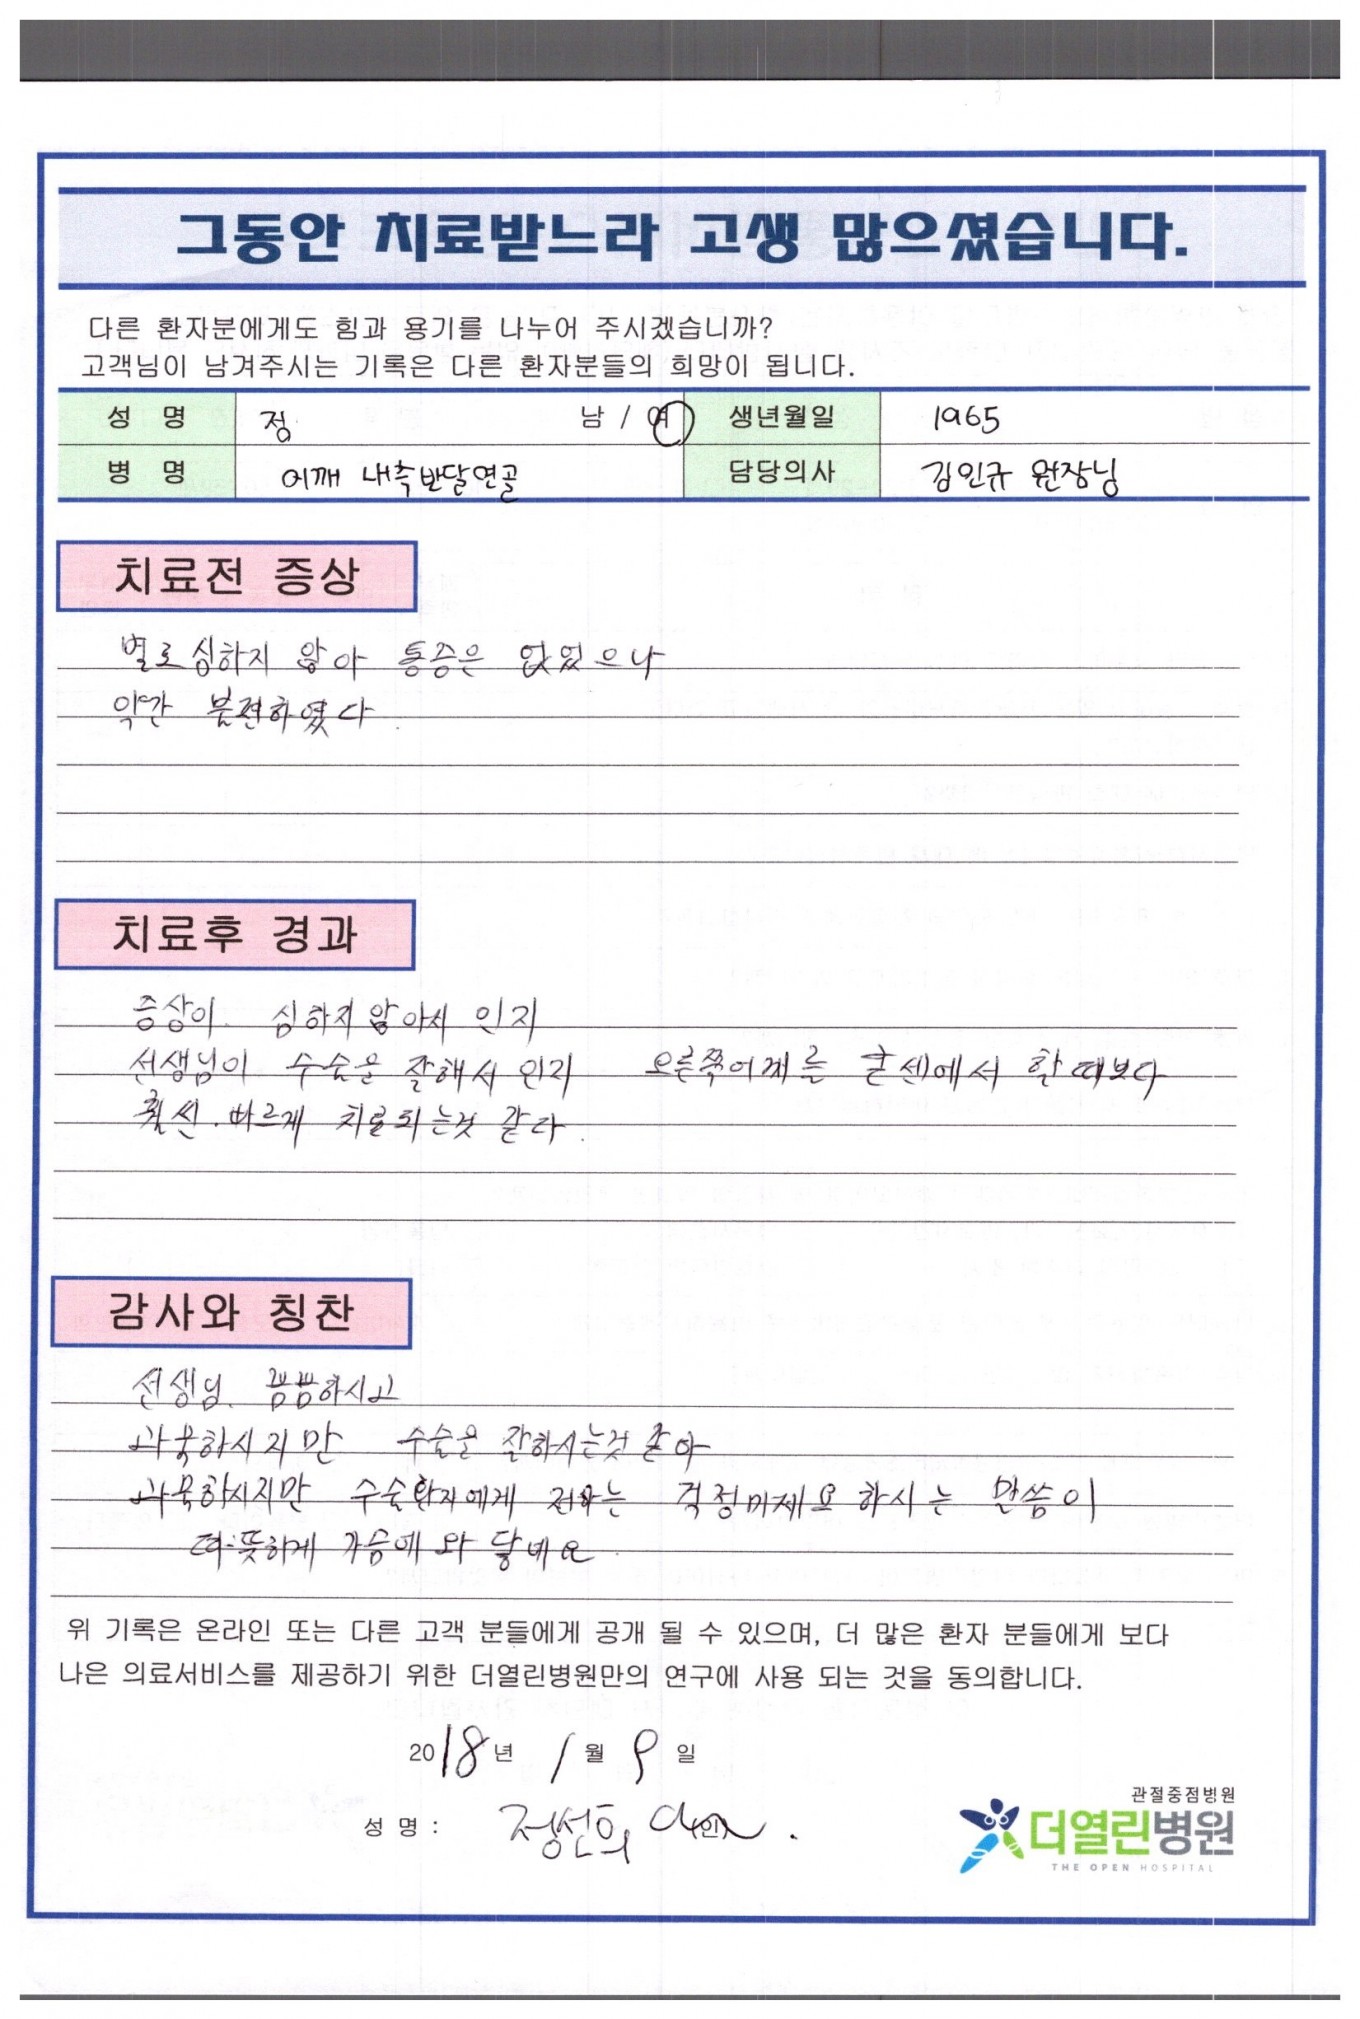 그동안 치료받느라 고생 많으셨습니다.
다른 환자분에게도 힘과 용기를 나누어 주시겠습니까?
고객님이 남겨주시는 기록은 다른 환자분들의 희망이 됩니다.
성 명 정 남 / 여 생년월일 1965
병 명 어깨 내측반달연골 담당의사 김인규 원장님
치료전 증상
별로 심하지 않아 통증은 없었으나
약간 불편하였다.
치료후 경과
증상이 심하지 않아서 인지
선생님이 수술을 잘해서 인지 오른쪽어깨를 큰센에서 할때보다
훨씬 빠르게 치료되는것 같다.
감사와 칭찬
선생님 쁨쁨하시고
과묵하시지만 수술을 잘하시는것 같아
과묵하시지만 수술환자에게 걱정마세요 하시는 말씀이
따뜻하게 가슴에 와 닿네요.
위 기록은 온라인 또는 다른 고객 분들에게 공개 될 수 있으며, 더 많은 환자 분들에게 보다
나은 의료서비스를 제공하기 위한 더열린병원만의 연구에 사용 되는 것을 동의합니다.
2018년 1월 9일
성 명 : 정선희 (인)
관절중점병원
더열린병원
THE OPEN HOSPITAL